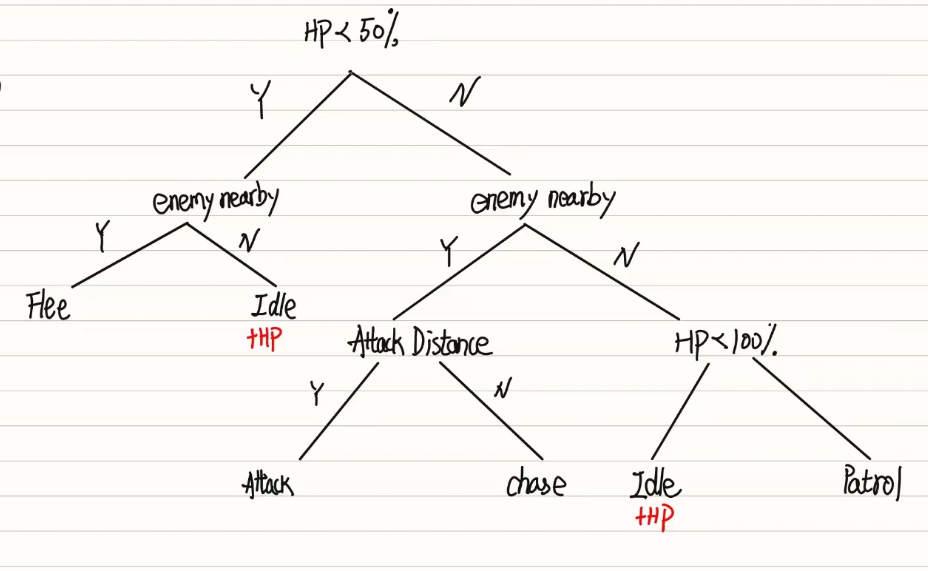 HP < 50%
Y
N
enemy nearby
enemy nearby
Y
N
Y
N
Flee
Idle
+HP
Attack Distance
HP < 100%
Y
N
Attack
chase
Idle
+HP
Patrol